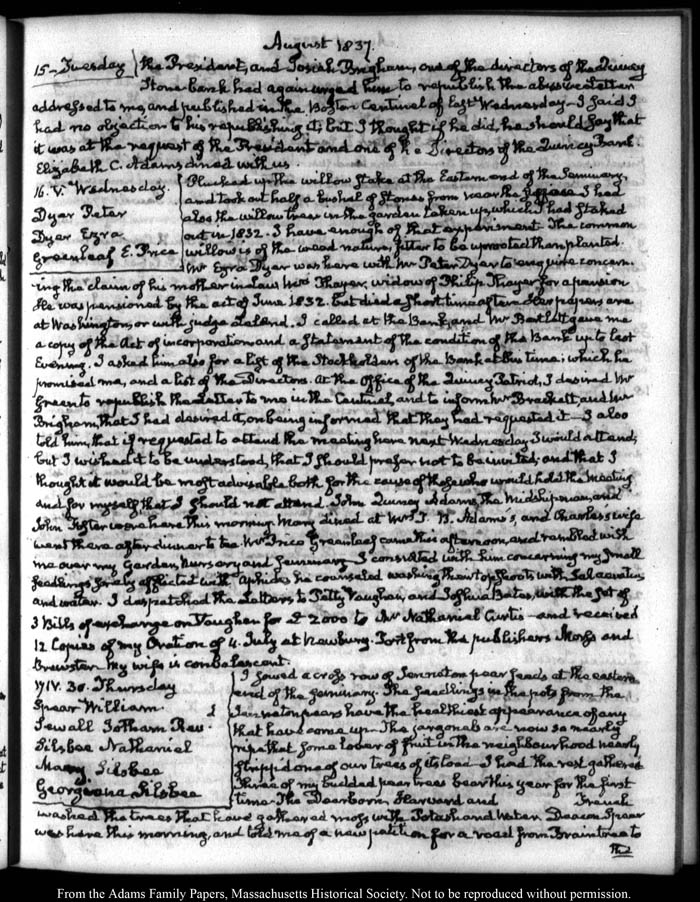 August 1837.
15. Tuesday the President, and Josiah Brigham, one of the directors of the Quincy
Stone bank had again urged him to republish the abusive Letter
addressed to me, and published in the Boston Centinel of last Wednesday. I said I
had no objection to his republishing it, but I thought if he did, he should say that
it was at the request of the President and one of the Directors of the Quincy Bank.
Elizabeth C. Adams dined with us.
16. V. Wednesday.
Dyar Peter
Dyer Ezra
Greenleaf E. Price
Plucked up the willow stake at the Eastern end of the Seminary,
and took out half a bushel of stones from near the surface. I had
also the willow trees in the garden taken up, which I had staked
out in 1832. I have enough of that experiment. The common
willow is of the weed nature, fitter to be uprooted than planted.
Mr Ezra Dyer was here with Mr Peter Dyer to enquire concern-
ing the claim of his mother in law Mrs Thayer, widow of Philip Thayer for a pension
He was pensioned by the act of June 1832. but died a short time after. Her papers are
at Washington, or with judge Leland. I called at the Bank, and Mr Bartlett gave me
a copy of the Act of incorporation, and a Statement of the condition of the Bank up to last
Evening. I asked him also for a list of the Stockholders of the Bank at this time; which he
promised me, and a list of the Directors. At the Office of the Quincy Patriot, I desired Mr
Green to republish the Letter to me in the Centinel, and to inform Mr Brackett and Mr
Brigham, that I had desired it, on being informed that they had requested it. I also
told him, that if requested to attend the meeting here next Wednesday I would attend;
but I wished it to be understood, that I should prefer not to be invited; and that I
thought it would be most adviseable both for the cause of those who would hold the Meeting
and for myself that I should not attend. John Quincy Adams, the Midshipman, and
John Foster were here this morning. Mary dined at Mrs T. B. Adams's, and Charles's wife
went there after dinner to tea. Mr Price Greenleaf came this afternoon, and rambled with
me over my Garden, Nursery and Seminary. I consulted with him concerning my small
seedlings sorely afflicted with aphides. he counseled washing the tops with
and water. I despatched the Letters to Petty Vaughan, and Joshua Bates, with the set of
3 Bills of exchange on Vaughan for £ 2000 to Mr Nathaniel Curtis and received
12 Copies of my Oration of 4. July at Newbury-Port from the publishers Morss and
Brewster. My wife is convalescent.
17 IV. 30. Thursday
Spear William.
Sewall Jotham Rev.
Silsbee Nathaniel
Mary Silsbee
Georgiana Silsbee
I sowed a cross row of Jenneton pear seeds at the eastern
end of the Seminary. The seedlings in the pots from the
Jenneton pears have the healthiest appearance of any
that have come up. The jargonels are now so nearly
ripe that some lover of fruit in the neighbourhood nearly
stripp'd one of our trees of its load. I had the rest gathered
Three of my budded pear trees bear this year for the first
time. The Dearborn, Harvard and French
washed the trees that have gathered moss with Potash and Water. Deacon Spear
was here this morning, and told me of a new petition for a road from Braintree to
the
From the Adams Family Papers, Massachusetts Historical Society. Not to be reproduced without permission.